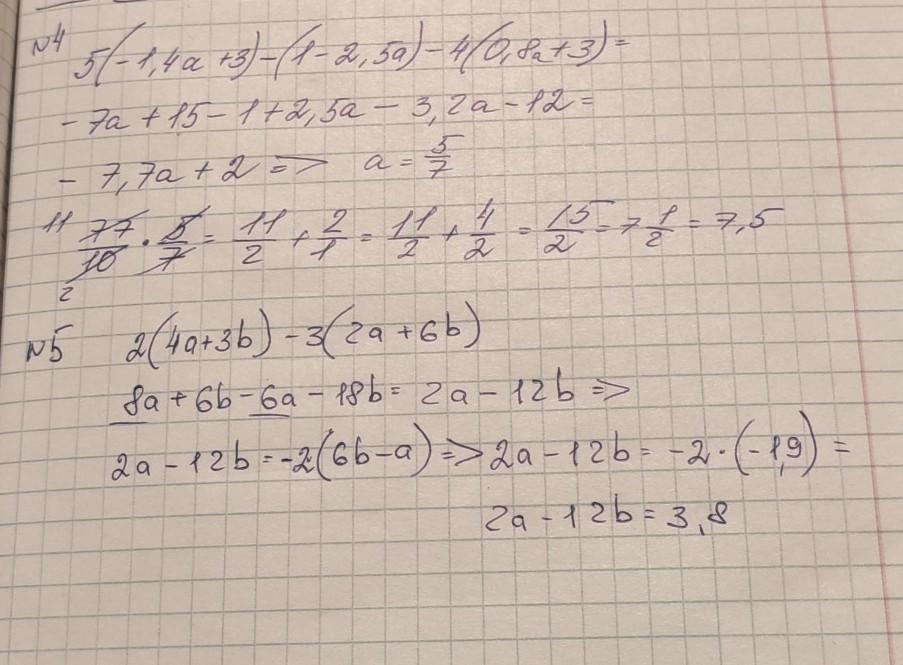 №4
5(-1,4a+3)-(1-2,5a)-4(0,8a+3)=
-7a+15-1+2,5a-3,2a-12=
-7,7a+2 => a=5/7
11 77/10 · 5/7 = 11/2 + 2/1 = 11/2 + 4/2 = 15/2 = 7 1/2 = 7,5
2
№5 2(4a+3b)-3(2a+6b)
8a+6b-6a-18b=2a-12b =>
2a-12b=-2(6b-a) => 2a-12b=-2·(-1,9)=
2a-12b=3,8